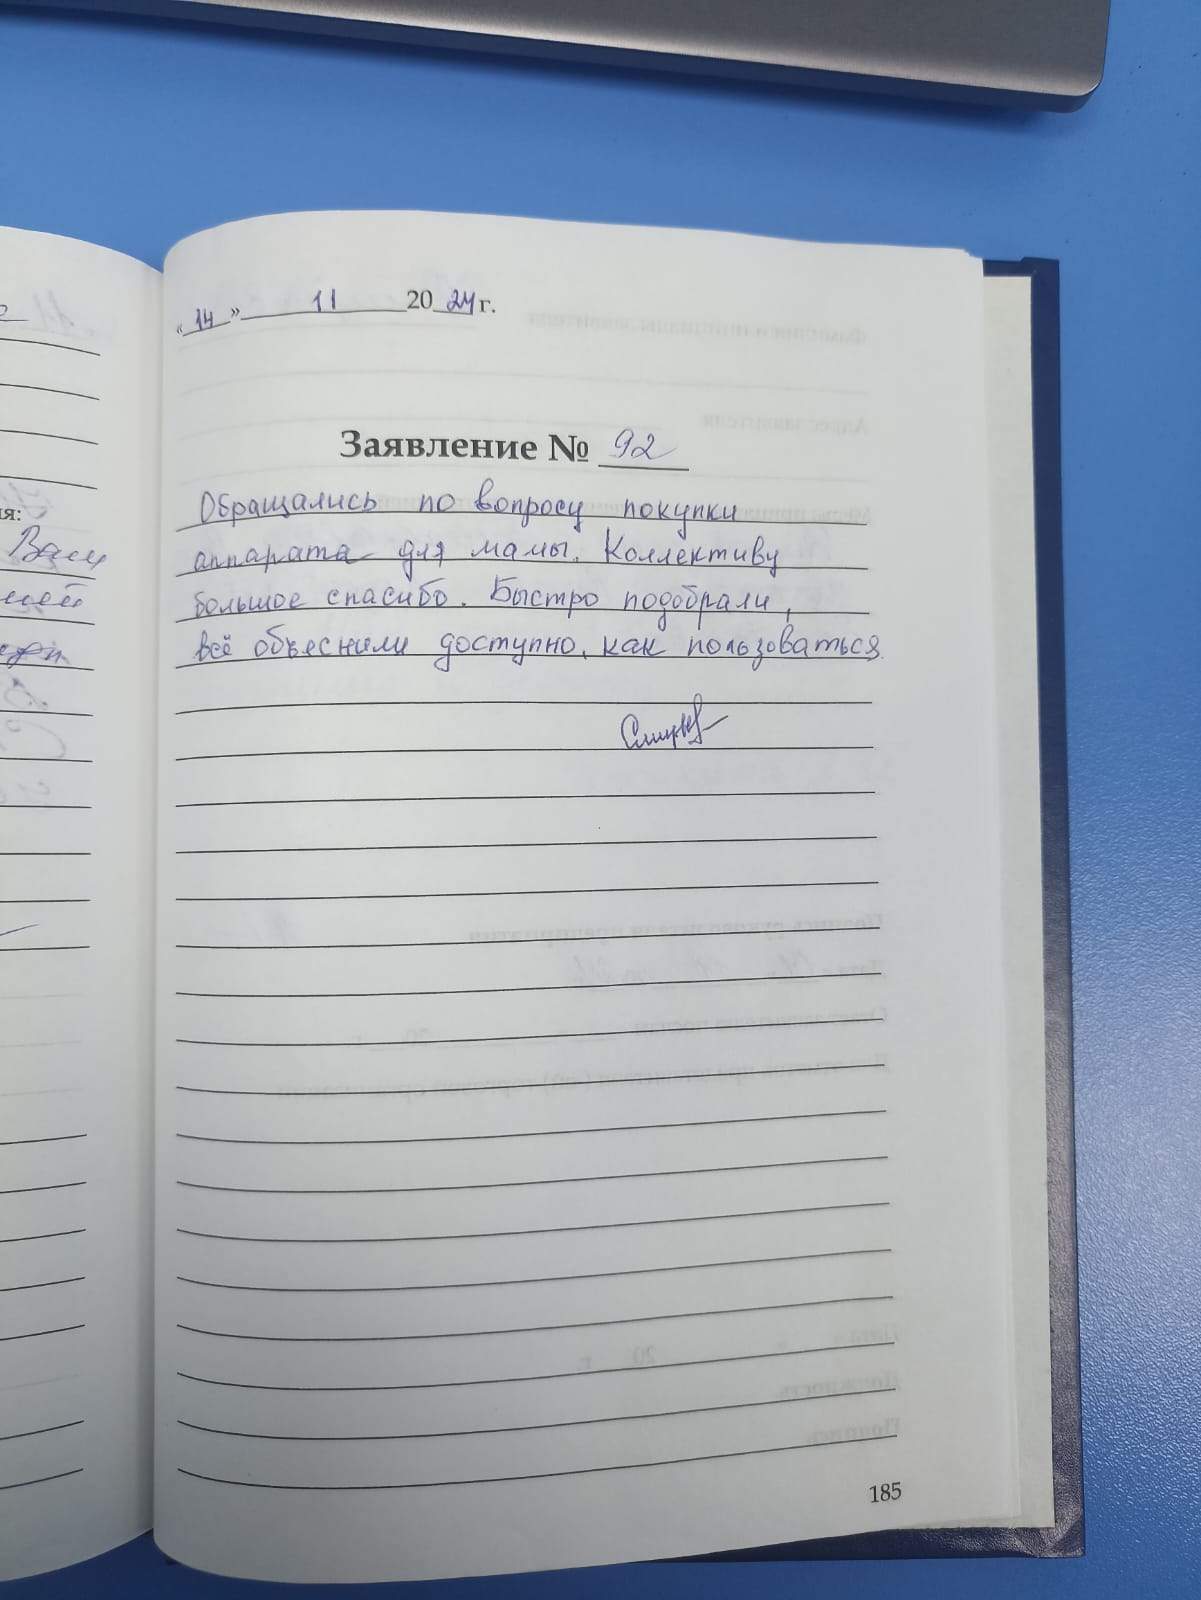 «14» 11 2024 г.
Заявление № 92
Обращались по вопросу покупки
аппарата для мамы. Коллективу
большое спасибо. Быстро подобрали,
всё объяснили доступно, как пользоваться.
185
ия:
Вам